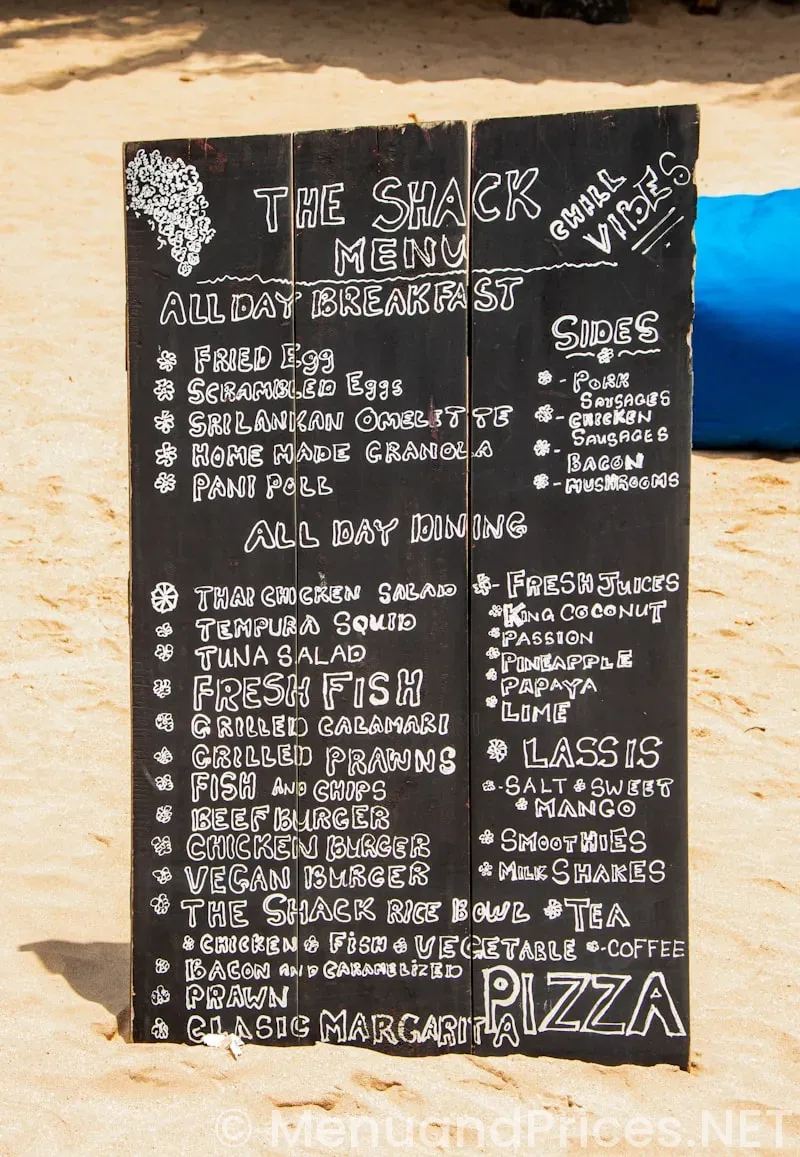 THE SHACK
MENU
CHILL
VIBES
ALL DAY BREAKFAST
FRIED Egg
SCRAMBLED Eggs
SRILANKAN OMELETTE
HOME MADE GRANOLA
PANI POLL
SIDES
- PORK
SAUSAGES
- CHICKEN
SAUSAGES
- BACON
- MUSHROOMS
ALL DAY DINING
THAI CHICKEN SALAD
TEMPURA SQUID
TUNA SALAD
FRESH FISH
GRILLED CALAMARI
GRILLED PRAWNS
FISH AND CHIPS
BEEF BURGER
CHICKEN BURGER
VEGAN BURGER
THE SHACK RICE BOWL
CHICKEN FISH VEGETABLE
BACON AND CARAMELIZED
PRAWN
CLASIC MARGARITA
- FRESH JUICES
KING COCONUT
PASSION
PINEAPPLE
PAPAYA
LIME
LASSIS
- SALT SWEET
MANGO
SMOOTHIES
MILK SHAKES
TEA
- COFFEE
PIZZA
© MenuandPrices.NET